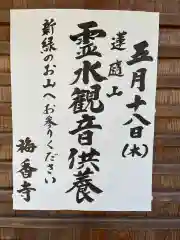 五月十八日(木)
蓮庭山
霊水観音供養
新緑のお山へお参りください
梅香寺